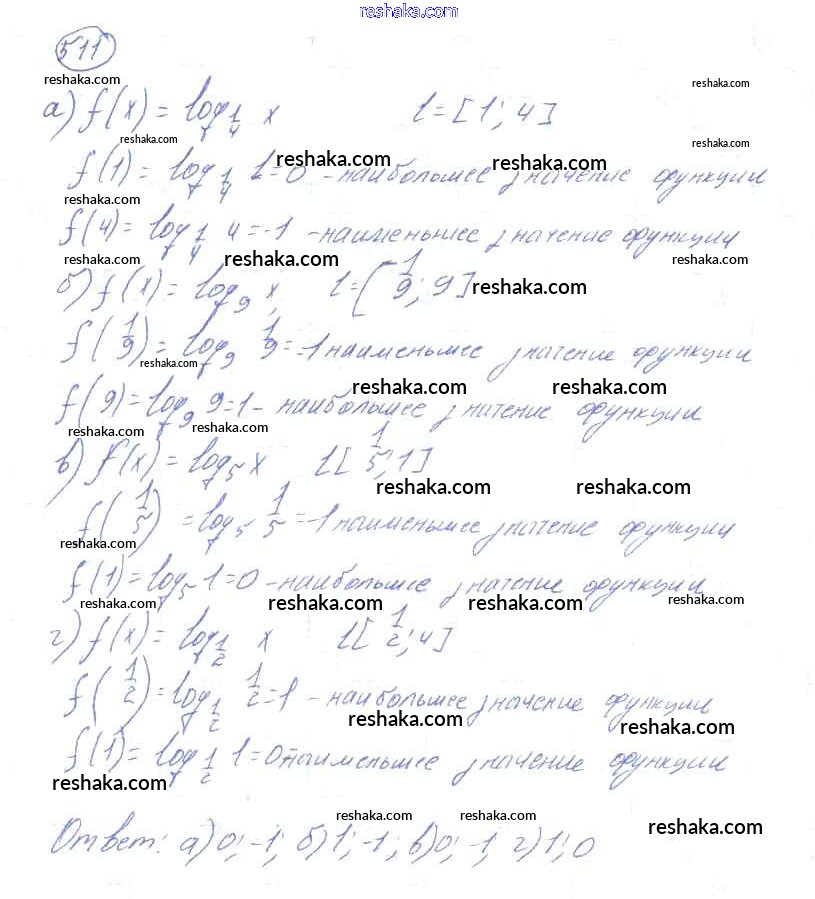 reshaka.com
511
reshaka.com
reshaka.com
а) f(x) = log_{1/4} x l = [1; 4]
reshaka.com
reshaka.com
f(1) = log_{1/4} 1 = 0 - наибольшее значение функции
reshaka.com reshaka.com
reshaka.com
f(4) = log_{1/4} 4 = -1 - наименьшее значение функции
reshaka.com reshaka.com reshaka.com
б) f(x) = log_9 x, l = [1/9; 9]
reshaka.com
f(1/9) = log_9 1/9 = -1 наименьшее значение функции
reshaka.com
reshaka.com reshaka.com
f(9) = log_9 9 = 1 - наибольшее значение функции
reshaka.com reshaka.com
в) f(x) = log_5 x l [1/5; 1]
reshaka.com reshaka.com
f(1/5) = log_5 1/5 = -1 наименьшее значение функции
reshaka.com
f(1) = log_5 1 = 0 - наибольшее значение функции
reshaka.com reshaka.com reshaka.com reshaka.com
г) f(x) = log_{1/2} x l [1/2; 4]
f(1/2) = log_{1/2} 1/2 = 1 - наибольшее значение функции
reshaka.com reshaka.com
f(1) = log_{1/2} 1 = 0 - наименьшее значение функции
reshaka.com
reshaka.com reshaka.com reshaka.com
Ответ: а) 0; -1; б) 1; -1; в) 0; -1; г) 1; 0